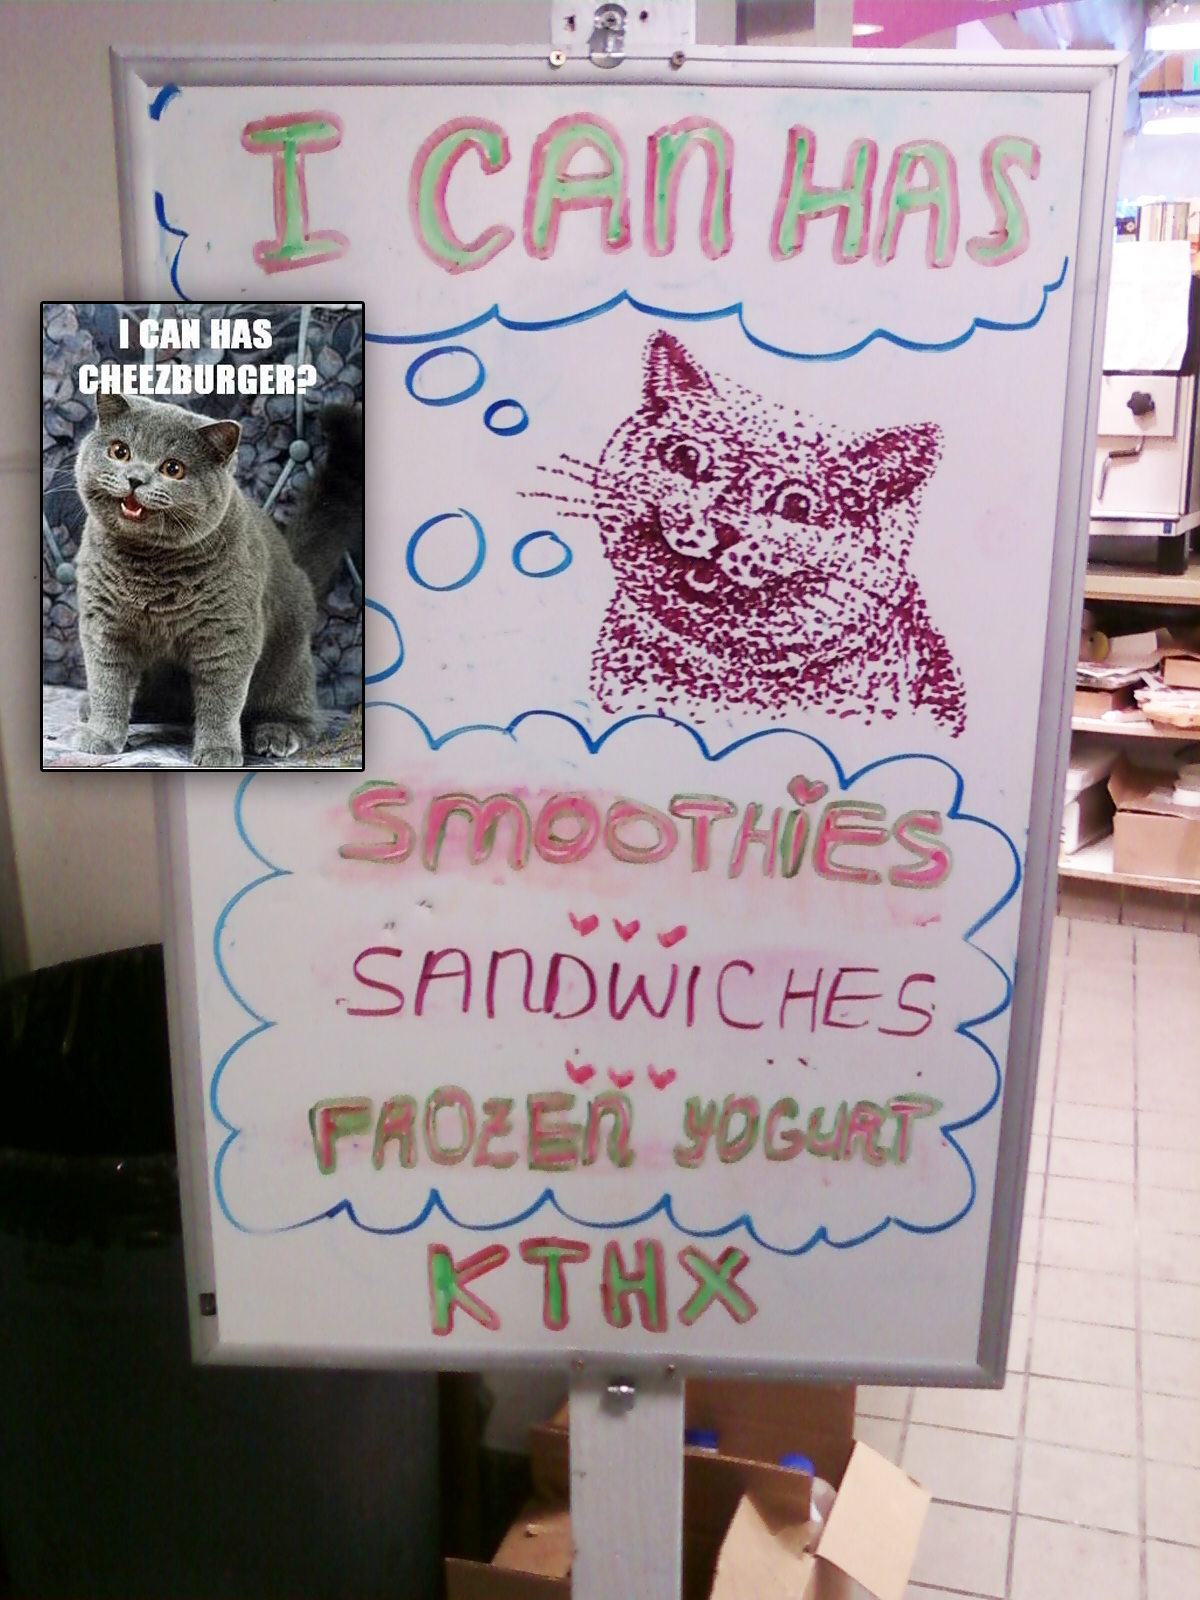 I CAN HAS
I CAN HAS
CHEEZBURGER?
SMOOTHIES
SANDWICHES
FROZEN YOGURT
KTHX